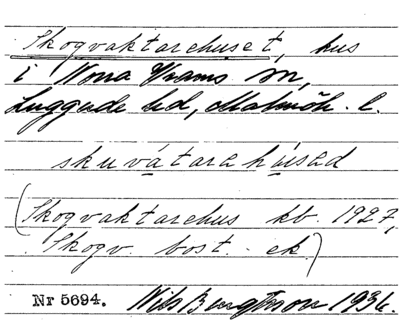 Skogvaktarehuset, hus
i Norra Vrams sn,
Luggude hd, Malmöh. l.
skuvátarahúsad
(Skogvaktarehus kb. 1927,
Skogv. bost. ek.)
Nr 5694. Nils Bengtsson 1936.